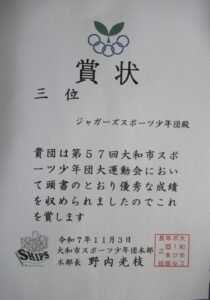 賞状
三位
ジャガーズスポーツ少年団殿
貴団は第57回大和市スポ
ーツ少年団大運動会におい
て頭書のとおり優秀な成績
を収められましたのでこれ
を賞します
令和7年11月3日
大和市スポーツ少年団本部
本部長 野内光枝
SHiPS